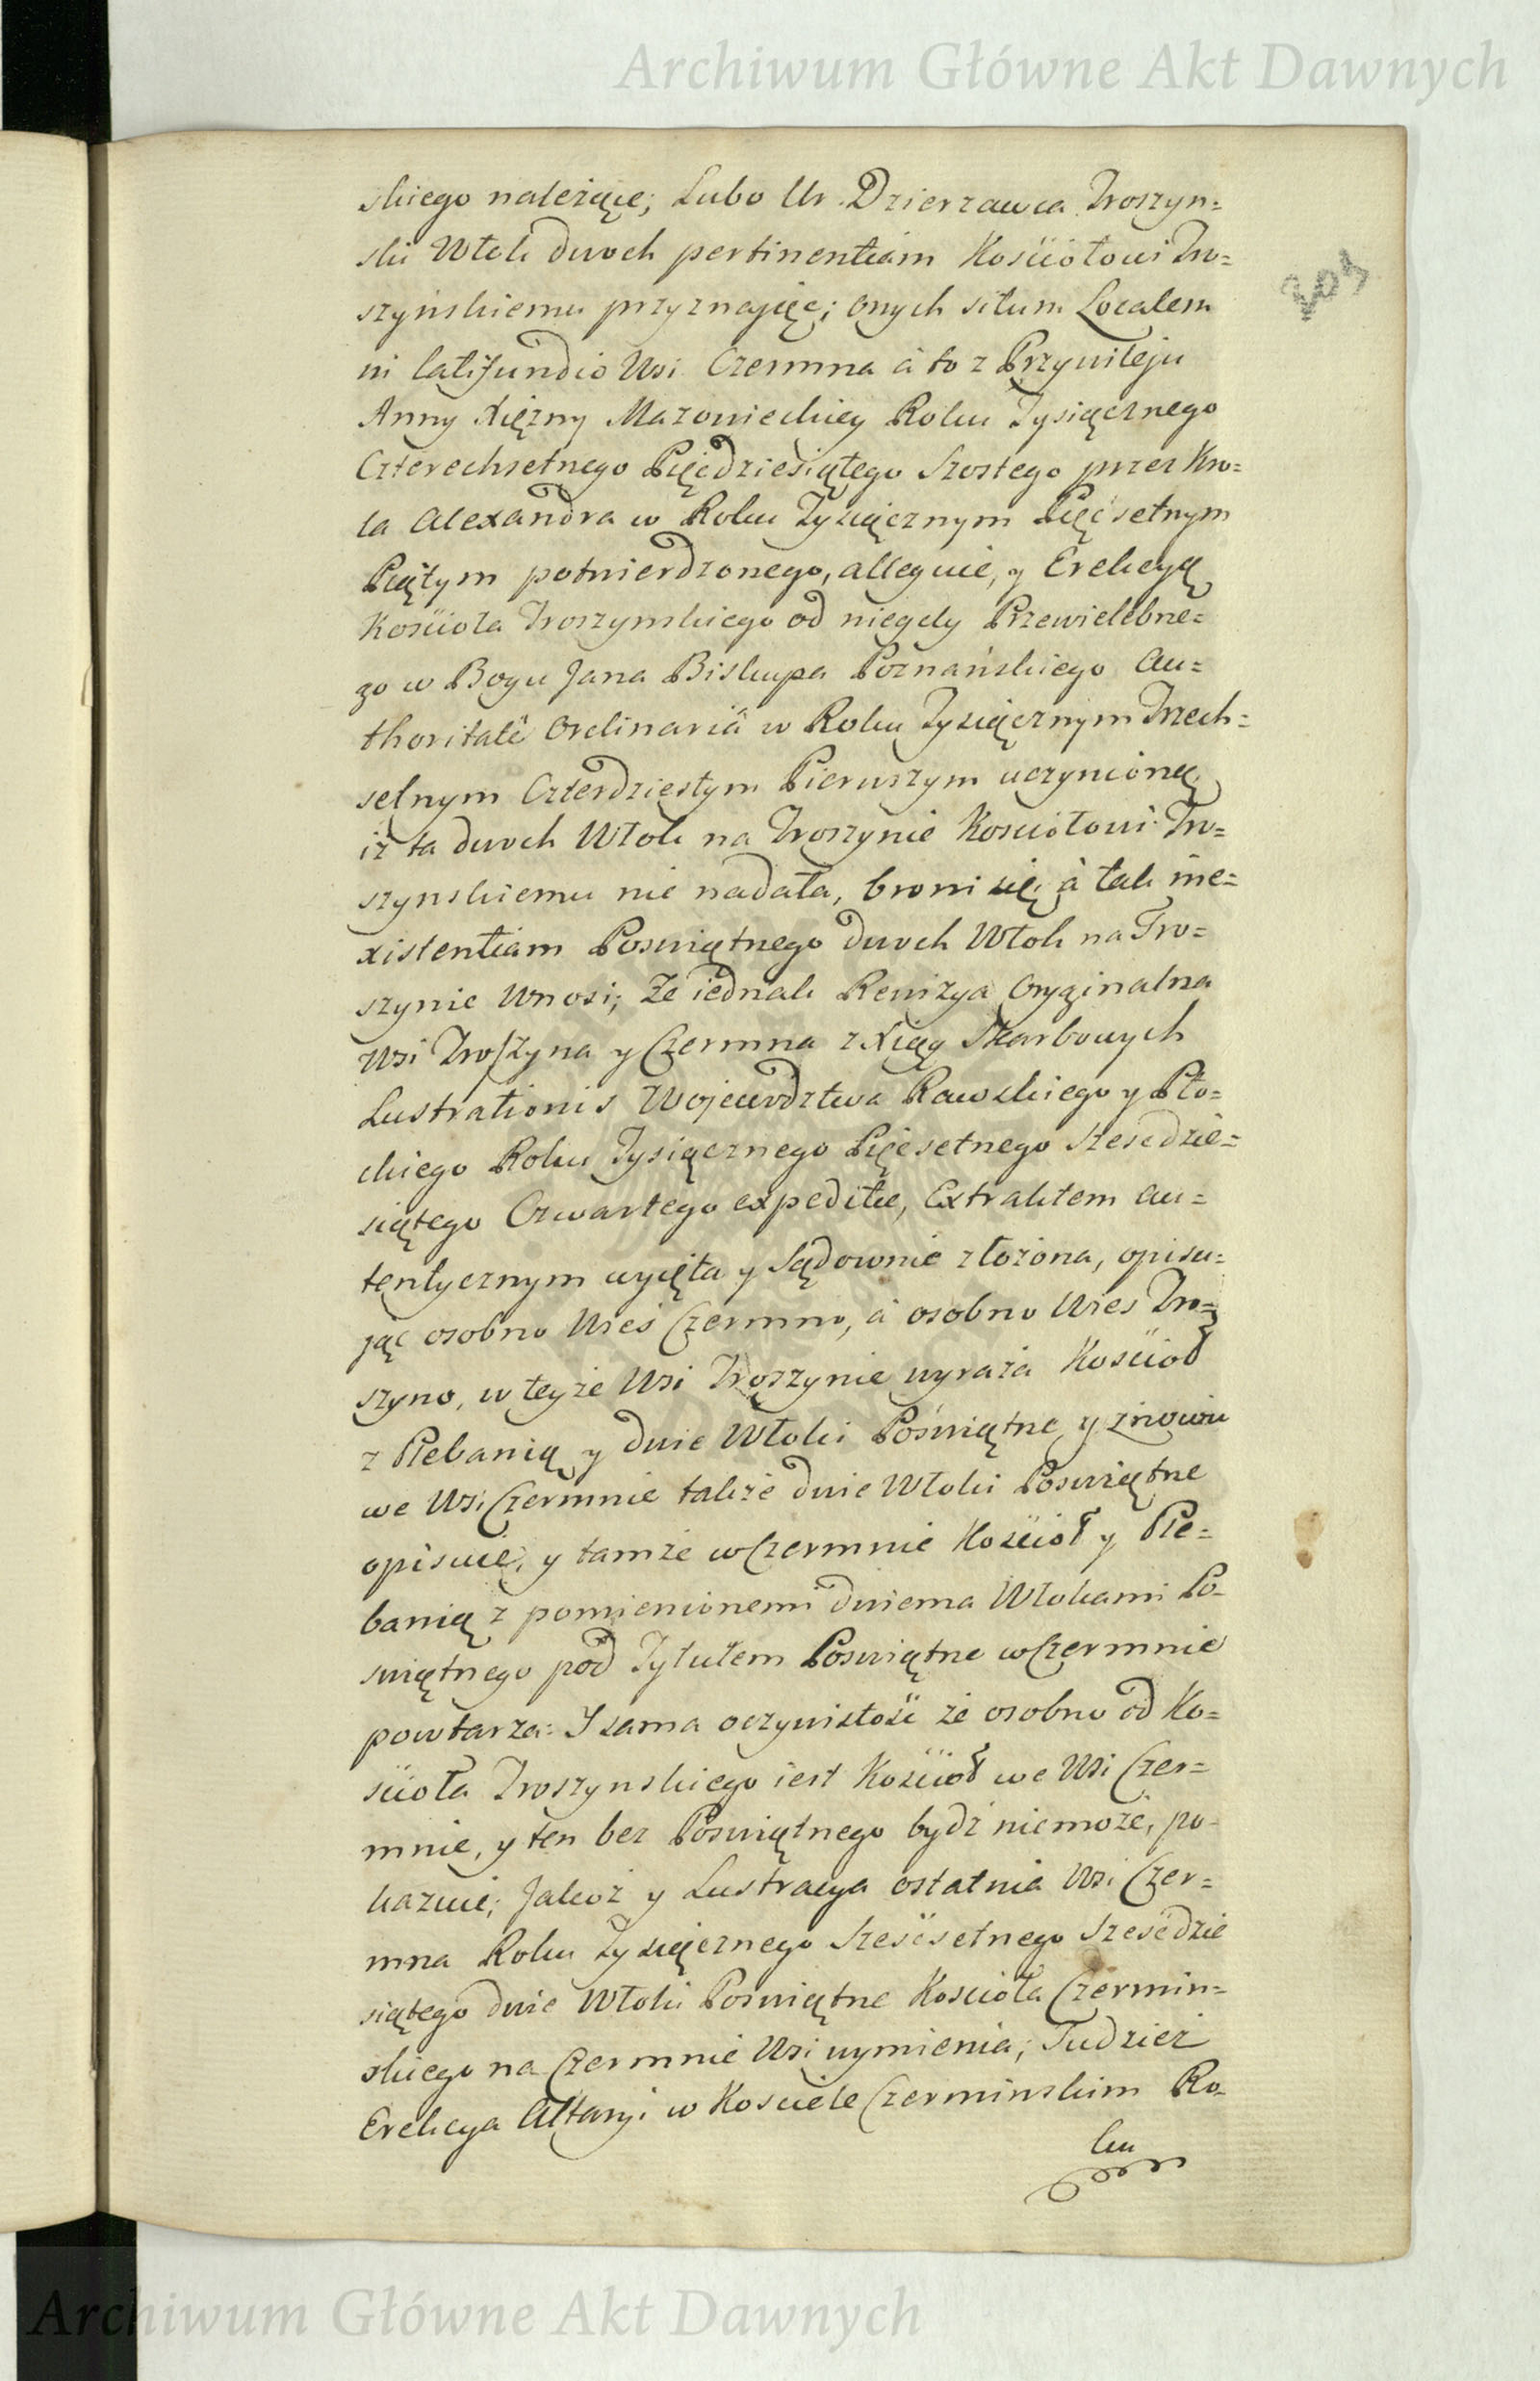 Archiwum Główne Akt Dawnych
skiego należące; Lubo Ur. Dzierzawca Troszyn=
ski Włok dwoch pertinentiam Kościołowi Tro=
szyńskiemu przyznając; onych situm Localem
in latifundio Wsi Czermna à to z Przywileju
Anny Xięzny Mazowieckiey Roku Tysiącznego
Czterechsetnego Pięćdziesiątego Szostego przez Kro=
la Alexandra w Roku Tysiącznym Pięćsetnym
Piątym potwierdzonego, alleguie, y Erekcyą
Kościoła Troszynskiego od niegdy Przewielebne=
go w Bogu Jana Biskupa Poznańskiego Au=
thoritatê Ordinariâ w Roku Tysiącznym Trzech=
setnym Czterdziestym Pierwszym uczynioną
iż ta dwoch Włok na Troszynie Kościołowi Tro=
szynskiemu nie nadała, broni się, à tak ine=
xistentiam Poswiętnego dwoch Włok na Tro=
szynie wnosi; Że iednak Rewizya Oryginalna
Wsi Troszyna y Czermna z Xiąg Skarbowych
Lustrationis Wojewodztwa Rawskiego y Pło=
ckiego Roku Tysiącznego Pięcsetnego Szescdzie=
siątego Czwartego expeditæ, Extraktem au=
tentycznym wyięta y Sądownie złożona, opisu=
jąc osobno Wieś Czermno, à osobno Wies Tro=
szyno, w teyże Wsi Troszynie wyraża Kościoł
z Plebanią y dwie Włoki Poświętne y znowu
we Wsi Czermnie także dwie Włoki Poswiętne
opisuie, y tamże w Czermnie Kościoł y Ple=
banią z pomienionemi dwiema Włokami Po-
swiętnego pod Tytułem Poswiętne w Czermnie
powtarza: I sama oczywistość że osobno od Ko=
ścioła Troszynskiego iest Kościoł we Wsi Czer=
mnie, y ten bez Poswiętnego bydź niemoże, po-
kazuie; Jakoż y Lustracya ostatnia Wsi Czer=
mna Roku Tysiącznego Sześćsetnego Szesćdzie
siątego dwie Włoki Poswiętne Kościoła Czermin=
skiego na Czermnie Wsi wymienia; Tudzież
Erekcya Altaryi w Kosciele Czerminskim Ro-
ku
Archiwum Główne Akt Dawnych